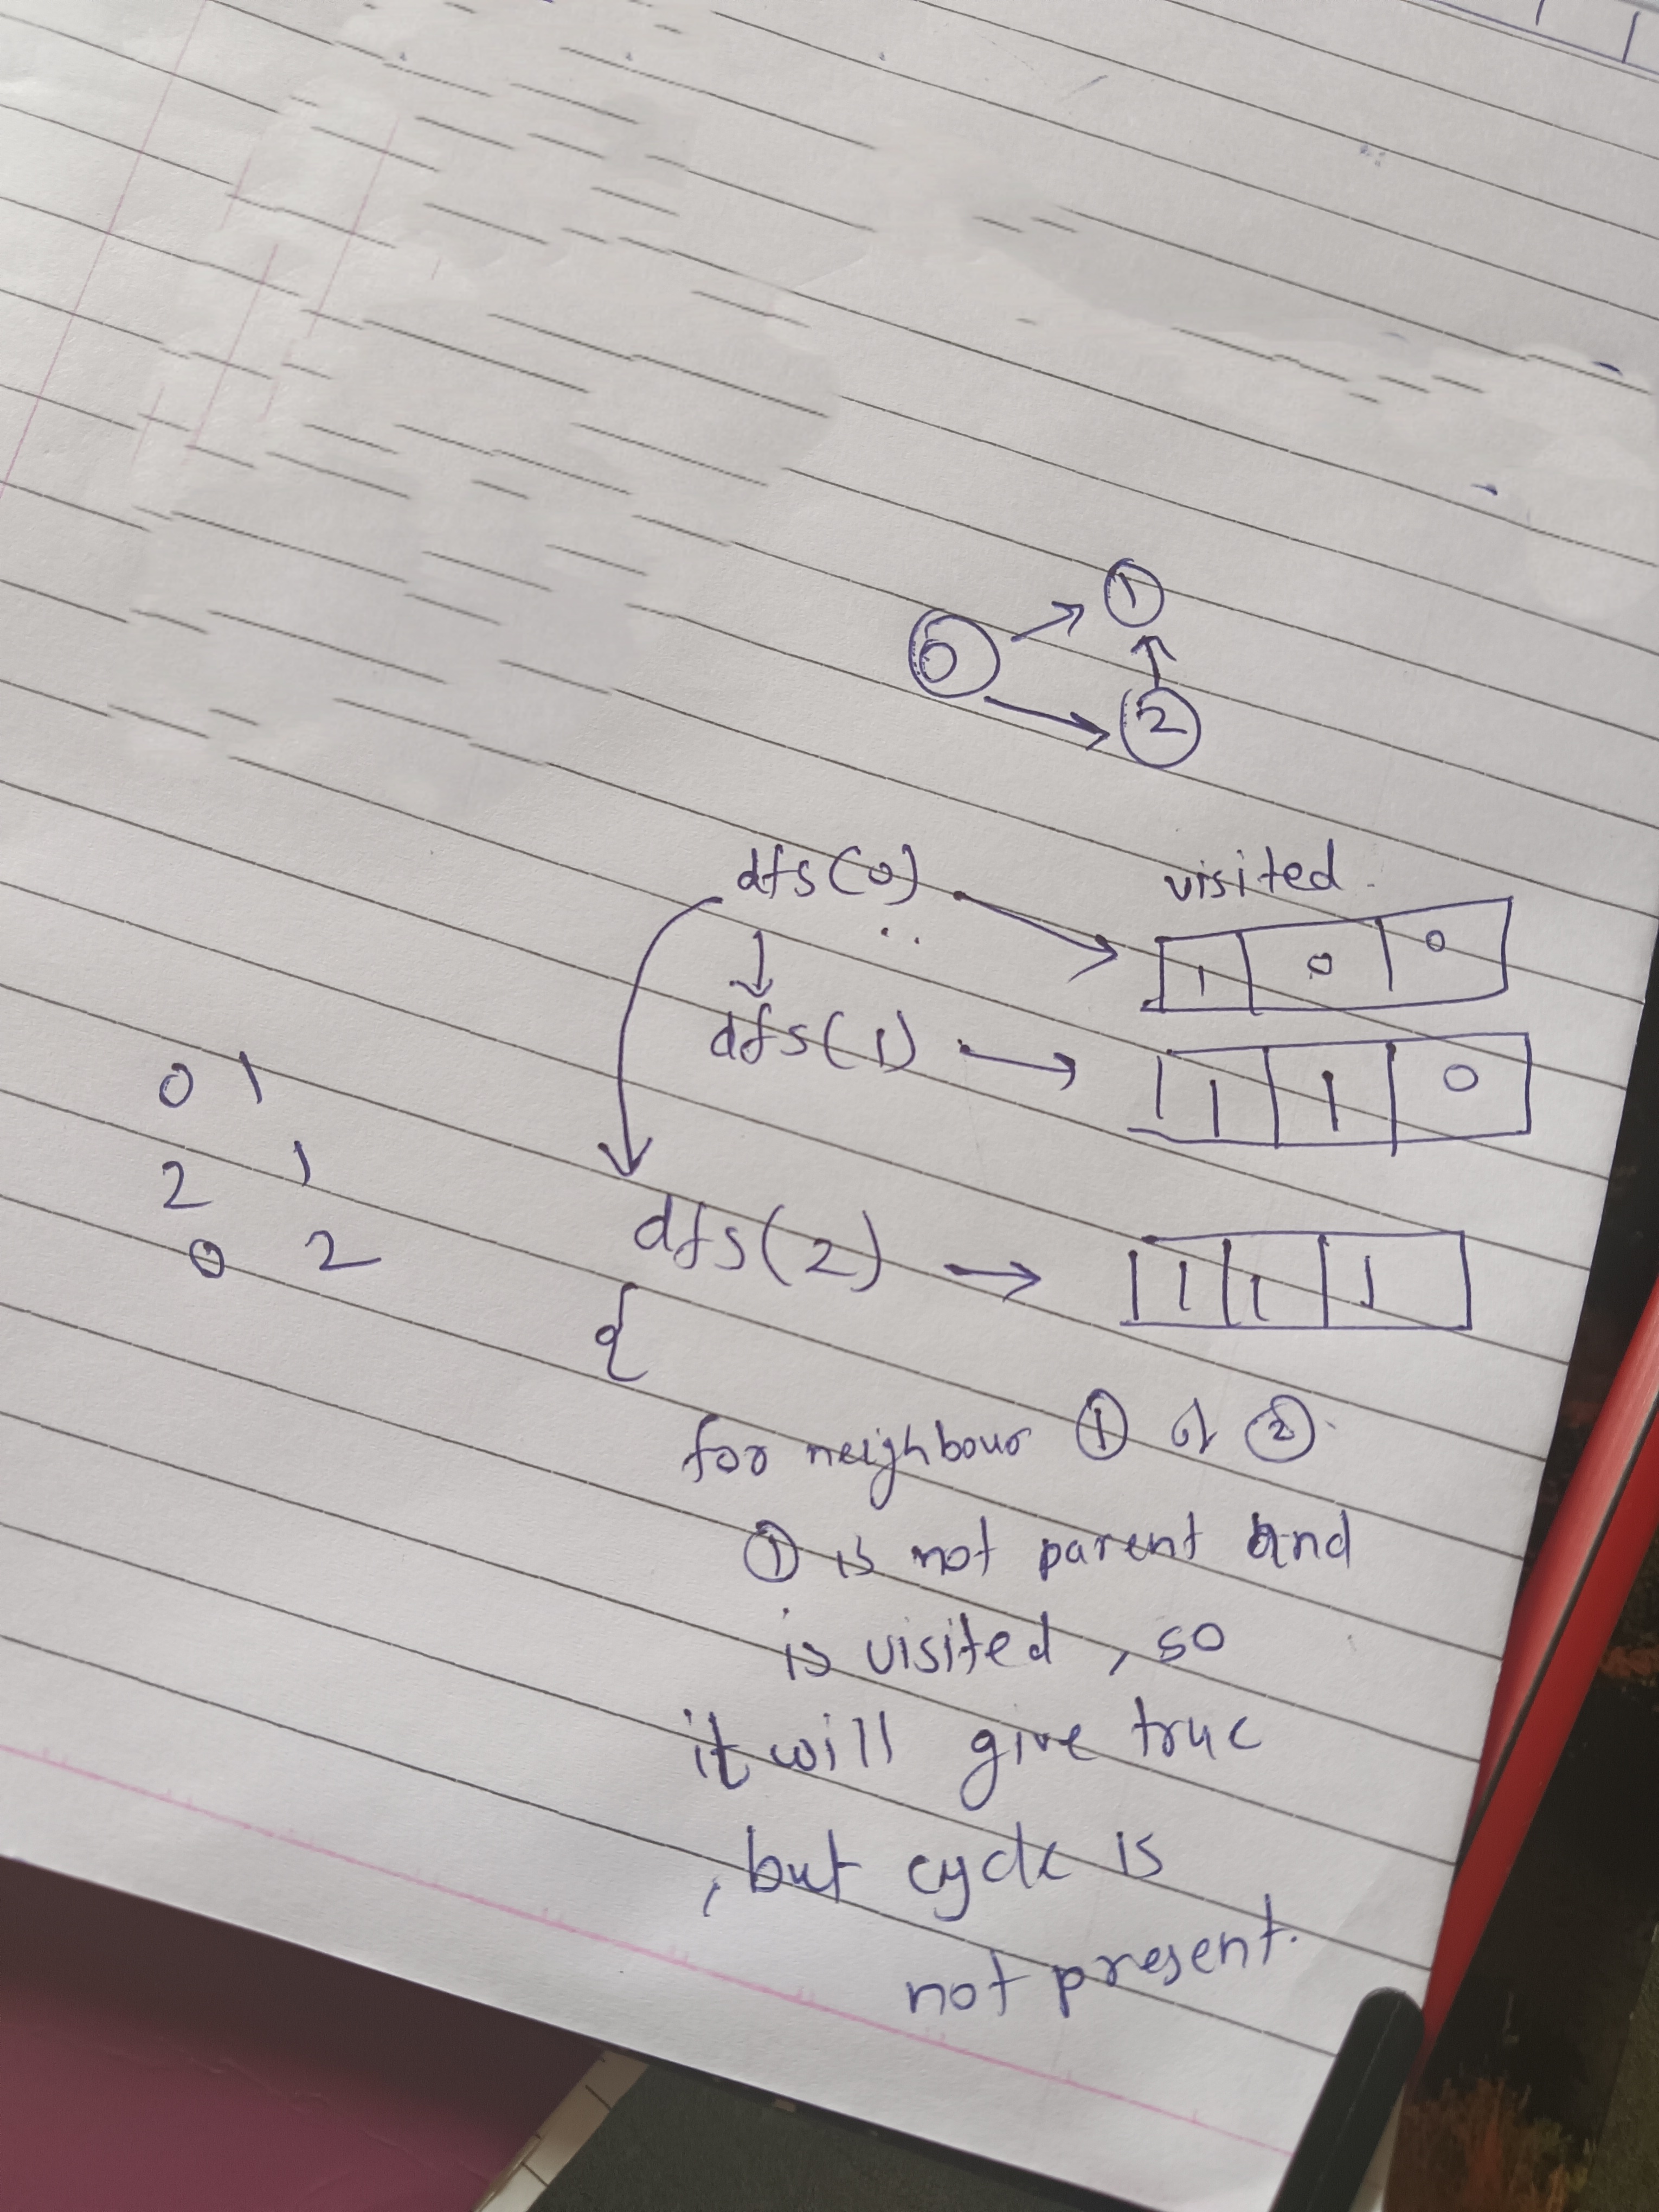 1
0
2
dfs(0) visited
1 0 0
dfs(1) → 1 1 0
0 1
2 1
0 2
dfs(2) → 1 1 1
{
for neighbour ① of ②
① is not parent and
is visited, so
it will give true
, but cycle is
not present.